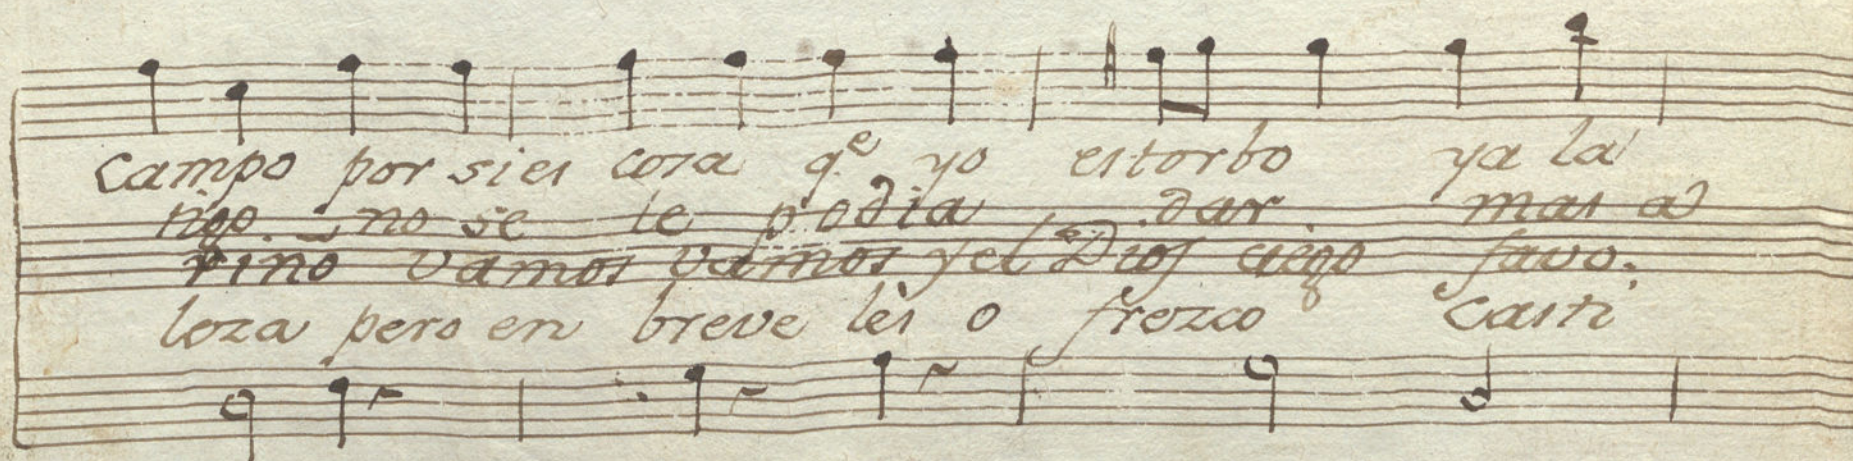 Campo por si es cosa q.e yo estorbo ya la
no se le podia dar mas a
riño vamos vamos y el Dios ciego favo.
loza pero en breve les o frezco Casti